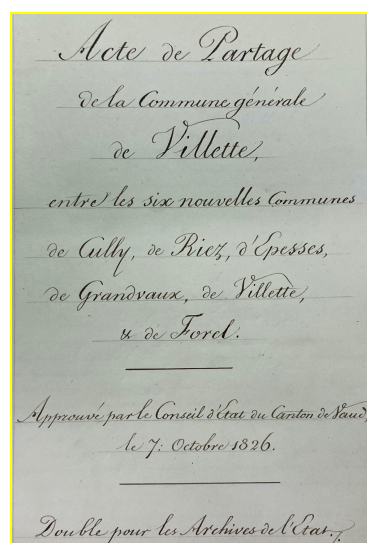 Acte de Partage
de la Commune générale
de Villette,
entre les six nouvelles Communes
de Cully, de Riez, d'Epesses,
de Grandvaux, de Villette,
& de Forel.
Approuvé par le Conseil d'Etat du Canton de Vaud,
le 7: Octobre 1826.
Double pour les Archives de l'Etat.